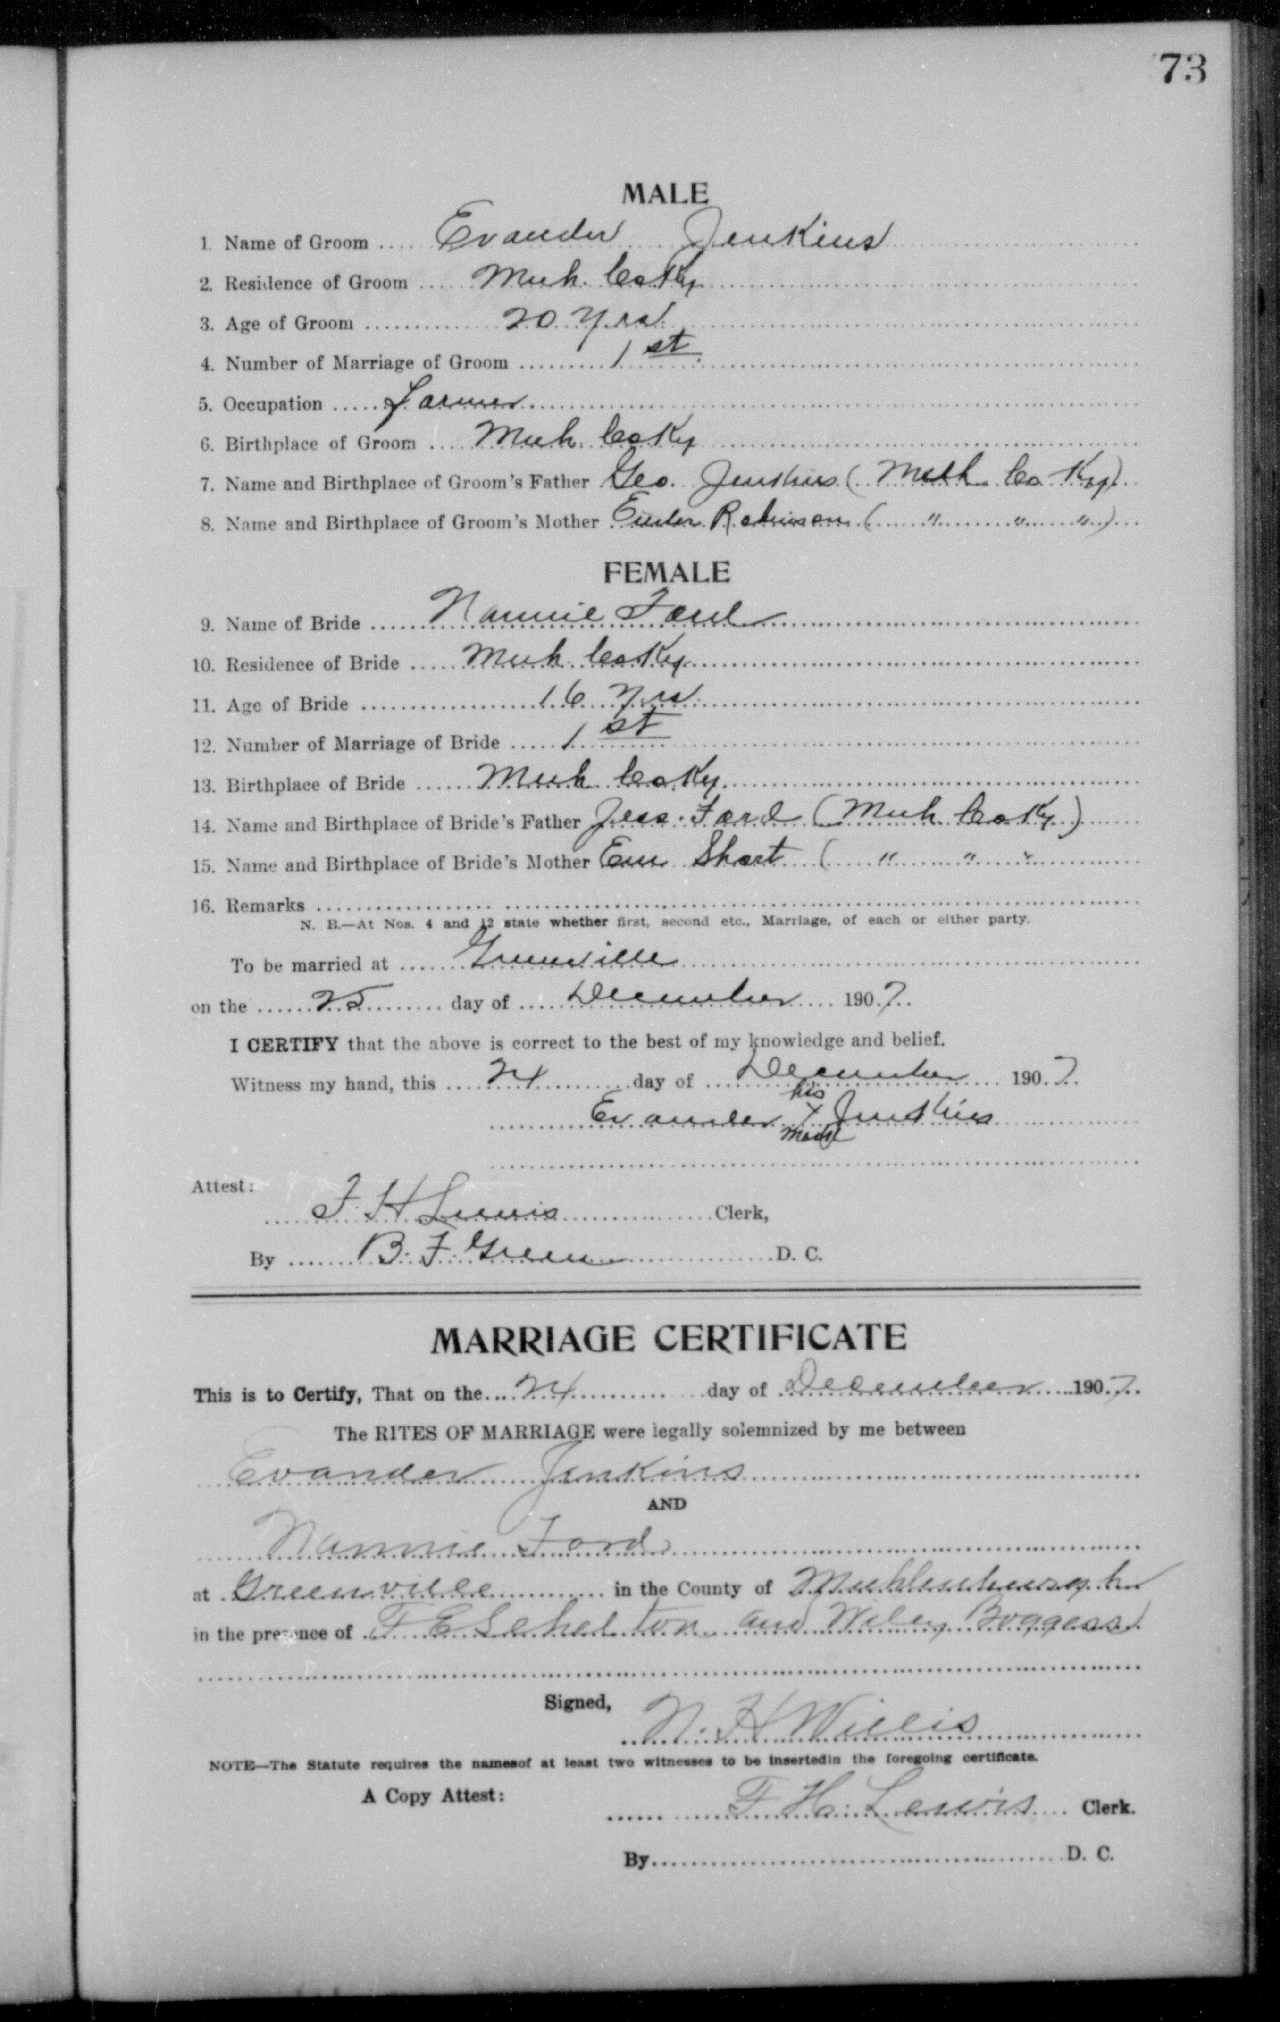 73
MALE
1 Name of Groom .... Evander Jenkins
2. Residence of Groom ..... Muh. Co Ky
3. Age of Groom ............. 20 yrs
4. Number of Marriage of Groom ......... 1 st
5. Occupation ..... Farmer
6. Birthplace of Groom .... Muh. Co Ky
7. Name and Birthplace of Groom's Father Geo. Jenkins ( Muh. Co Ky)
8. Name and Birthplace of Groom's Mother Robinson ( " " " )
FEMALE
9. Name of Bride ...... Nannie Ford
10. Residence of Bride ..... Muh Co Ky
11. Age of Bride .................. 16 yrs
12. Number of Marriage of Bride ..... 1 st
13. Birthplace of Bride ...... Muh Co Ky
14. Name and Birthplace of Bride's Father Jess. Ford ( Muh Co Ky )
15. Name and Birthplace of Bride's Mother Em Short ( " " "
16. Remarks
N. B.—At Nos. 4 and 12 state whether first, second etc., Marriage, of each or either party.
To be married at ...... Greenville
on the ...... 25 ........ day of ..... December .... 190.7..
I CERTIFY that the above is correct to the best of my knowledge and belief.
Witness my hand, this .... 24 .......... day of ... December ... 190.7.
his
Evander x Jenkins
mark
Attest:
F. H Lewis ................ Clerk,
By ....... B. F. Green ................ D. C.
MARRIAGE CERTIFICATE
This is to Certify, That on the... 24 ............ day of December ....190.7.
The RITES OF MARRIAGE were legally solemnized by me between
Evander Jenkins
AND
Nannie Ford
at Greenville .......... in the County of Muhlenburgh
in the presence of F E Schelton and Wiley Boggess
Signed,
N. H Willis
NOTE—The Statute requires the namesof at least two witnesses to be insertedin the foregoing certificate.
A Copy Attest:
F. H. Lewis .... Clerk.
By.......................................... D. C.